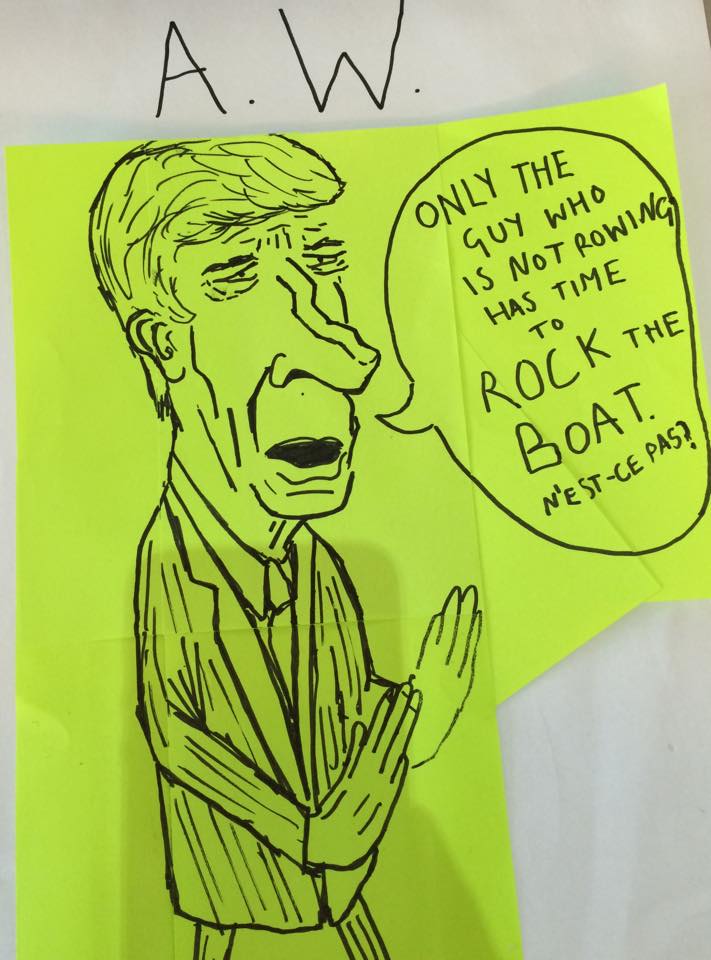 A. W.
ONLY THE
GUY WHO
IS NOT ROWING
HAS TIME
TO
ROCK THE
BOAT.
N'EST-CE PAS?